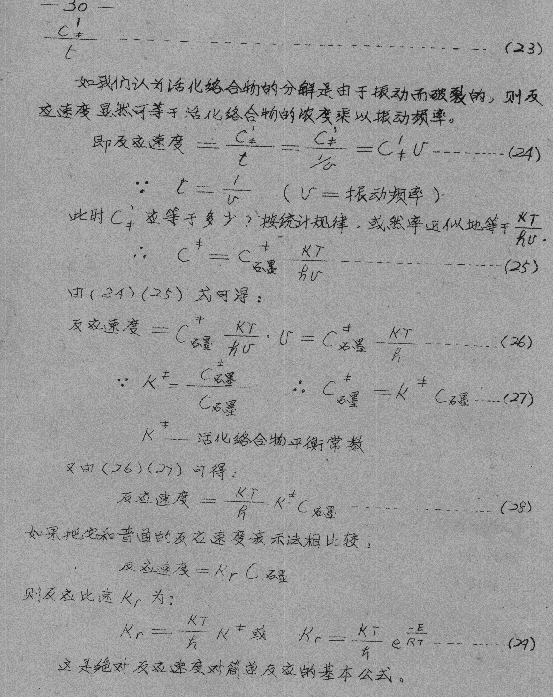 — 30 —
C'‡ / t ---------- (23)
如我们认为活化络合物的分解是由于振动而破裂的，则反
应速度显然可等于活化络合物的浓度乘以振动频率。
即反应速度 = C'‡ / t = C'‡ / 1/υ = C'‡ υ ---------- (24)
∵ t = 1/υ （υ = 振动频率）
此时 C'‡ 应等于多少？按统计规律，或然率近似地等于 KT/hυ.
∴ C‡ = C‡石墨 KT/hυ ---------- (25)
由(24)(25) 式可得：
反应速度 = C‡石墨 KT/hυ · υ = C‡石墨 KT/h ---------- (26)
∵ K‡ = C‡石墨 / C石墨 ∴ C‡石墨 = K‡ C石墨 ---- (27)
K‡ — 活化络合物平衡常数
又由(26)(27)可得：
反应速度 = KT/h K‡ C石墨 ---------- (28)
如果把它和普通的反应速度表示法相比较，
反应速度 = Kr C石墨
则反应比速 Kr 为：
Kr = KT/h K‡ 或 Kr = KT/h e^(-E/RT) ---- (29)
这是绝对反应速度对简单反应的基本公式。